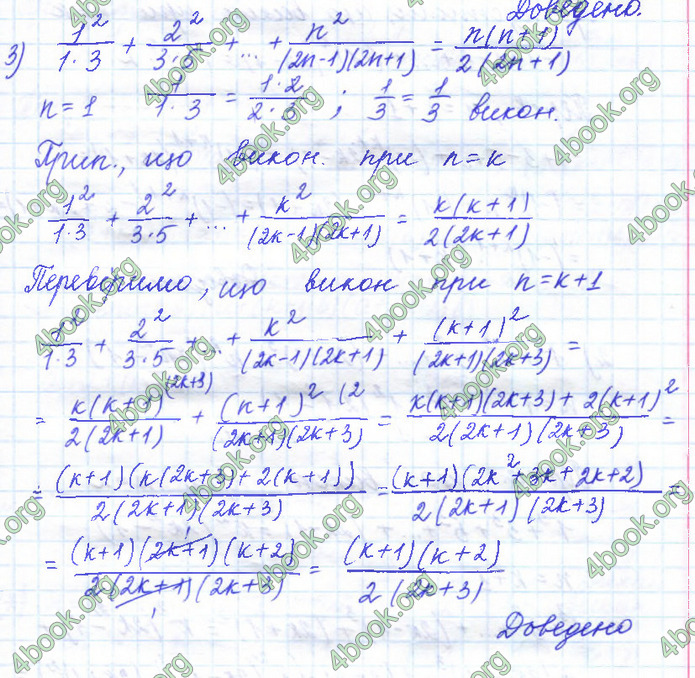 Доведено.
3) 1²/(1·3) + 2²/(3·5) + ... + n²/((2n-1)(2n+1)) = n(n+1)/(2(2n+1))
n=1 1/(1·3) = (1·2)/(2·3) ; 1/3 = 1/3 викон.
Прип., що викон. при n=k
1²/(1·3) + 2²/(3·5) + ... + k²/((2k-1)(2k+1)) = k(k+1)/(2(2k+1))
Перевіримо, що викон при n=k+1
1²/(1·3) + 2²/(3·5) + ... + k²/((2k-1)(2k+1)) + (k+1)²/((2k+1)(2k+3)) =
= k(k+1)^(2k+3)/(2(2k+1)) + (k+1)² (2/((2k+1)(2k+3)) = (k(k+1)(2k+3) + 2(k+1)²)/(2(2k+1)(2k+3)) =
= (k+1)(k(2k+3)+2(k+1))/(2(2k+1)(2k+3)) = (k+1)(2k²+3k+2k+2)/(2(2k+1)(2k+3)) =
= (k+1)(2k+1)(k+2)/(2(2k+1)(2k+3)) = (k+1)(k+2)/(2(2k+3))
Доведено
4book.org